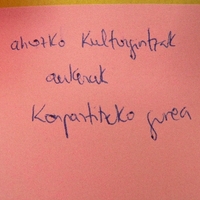 ahozko Kulturgintzak
aukerak
Konpartitzeko gunea